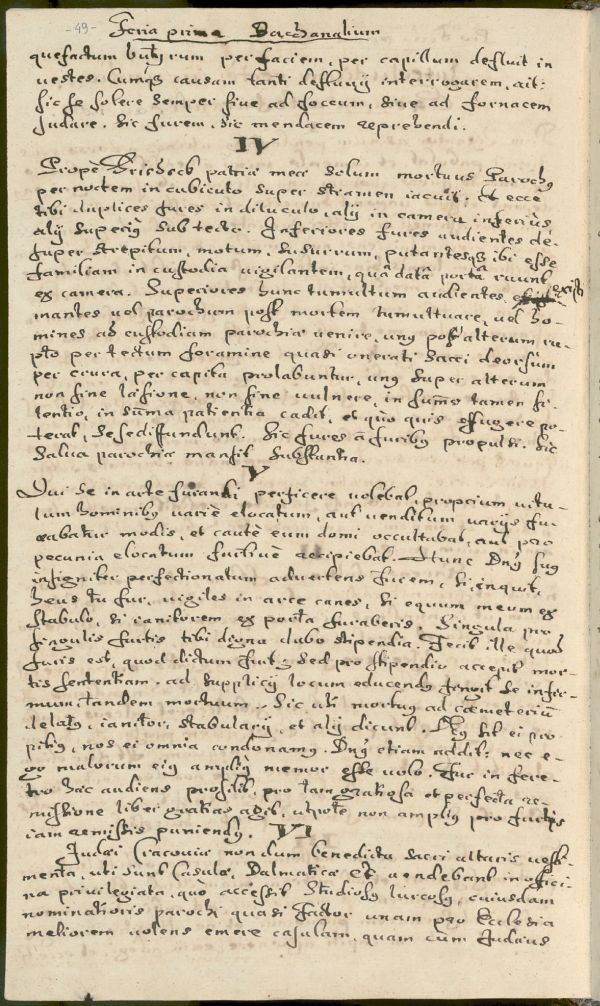 -49- Feria prima Bacchanalium
quefactum butÿrum per faciem, per capillum defluit in
vestes. Cumq3 causam tanti defluvij interrogarem, ait:
sic se solere semper sive ad foccum, sive ad fornacem
sudare. Sic furem, sic mendacem reprehendi.
IV
Propè patriæ meæ solum mortuus Parochus
per noctem in cubiculo super stramen iacuit. Et ecce
tibi duplices fures in diluculo, alij in camera inferius,
alij superius sub tecto. Inferiores fures audientes de-
super strepitum, motum, susurrum, putantesq3 ibi esse
familiam in custodia vigilantem, quâ datâ portâ ruunt
ex camera. Superiores hunc tumultum audientes, existi-
mantes vel parochum post mortem tumultuare, vel ho-
mines ad custodiam parochiæ venire, unus post alterum ru-
pto per tectum foramine quasi onerati sacci deorsum
per crura, per capita prolabuntur, unus super alterum
non sine læsione, non sine vulnere, in summo tamen si-
lentio, in summa patientia cadit, et quò quis effugere po-
terat, sese diffundunt. Sic fures â furibus propulsi. Sic
Salva parochiæ mansit substantia.
V
Qui se in arte furandi perficere volebat, proprium vitu-
lum hominibus variè elocatum, aut venditum varijs fu-
rabatur modis, et cautè eum domi occultabat, aut pro
pecunia elocatum furtivè accipiebat. Hunc Dnus suus
insigniter perfectionatum advertens furem, Si, inquit,
heus tu fur, vigiles in arce canes, si equum meum ex
stabulo, si ianitorem ex porta furaberis. Singula pro
singulis furtis tibi digna dabo stipendia. Fecit ille quod
furis est, quod dictum fuit; sed pro stipendio accepit mor-
tis sententiam. ad supplicij locum educendus fingit se infir-
mum, tandem mortuum. Sic uti mortuus ad cœmeterium
delatus, ianitor, stabularij, et alij dicunt. Deus sit ei pro-
pitius, nos ei omnia condonamus. Dnus etiam addit: nec e-
go malorum eius amplius memor esse volo. Fur in fere-
tro hæc audiens prosilit, pro tam gratiosa et perfecta re-
missione liber gratias agit, utpote non amplius pro furtis
iam remissis puniendus. VI
Judæi Cracoviæ nondum benedicta sacri altaris vesti-
menta, uti sunt Casulæ, Dalmaticæ Et vendebant in offici-
na privilegiata, quo accessit Studiosus lurcosus, cuiusdam
nominatioris parochi quasi factor unam pro Ecclesia
meliorem volens emere casulam, quam cùm Judæus